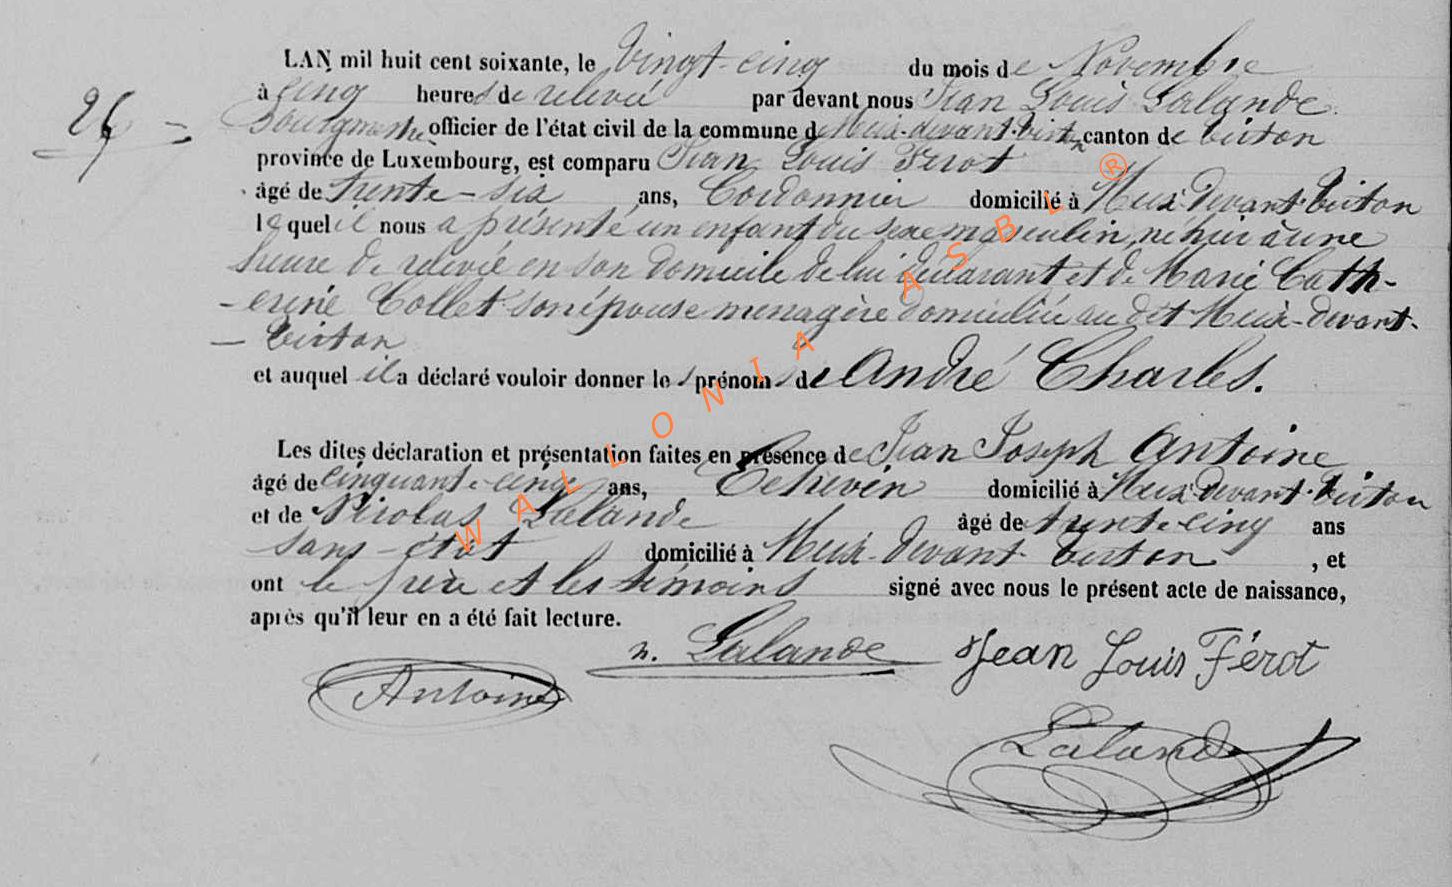 LAN mil huit cent soixante, le Vingt-cinq du mois de Novembre
à cinq heures de relevée par devant nous Jean Louis Lalande
26 =
Bourgmestre officier de l'état civil de la commune de Meix-devant-Virton canton de Virton
province de Luxembourg, est comparu Jean Louis Férot
âgé de trente-six ans, Cordonnier domicilié à Meix-Devant-Virton
lequel il nous a présenté un enfant du sexe masculin, né hier à une
heure de relevée en son domicile de lui déclarant et de Marie Cath-
-erine Collet son épouse ménagère domiciliée au dit Meix-devant-
-Virton
et auquel il a déclaré vouloir donner les prénoms de André Charles.
Les dites déclaration et présentation faites en présence de Jean Joseph Antoine
âgé de cinquante-cinq ans, Echevin domicilié à Meix-Devant-Virton
et de Nicolas Lalande âgé de trente-cinq ans
Sans-état domicilié à Meix-Devant Virton, et
ont le père et les témoins signé avec nous le présent acte de naissance,
après qu'il leur en a été fait lecture.
n. Lalande Jean Louis Férot
Antoine
Lalande
WALLONIA ASBL ®